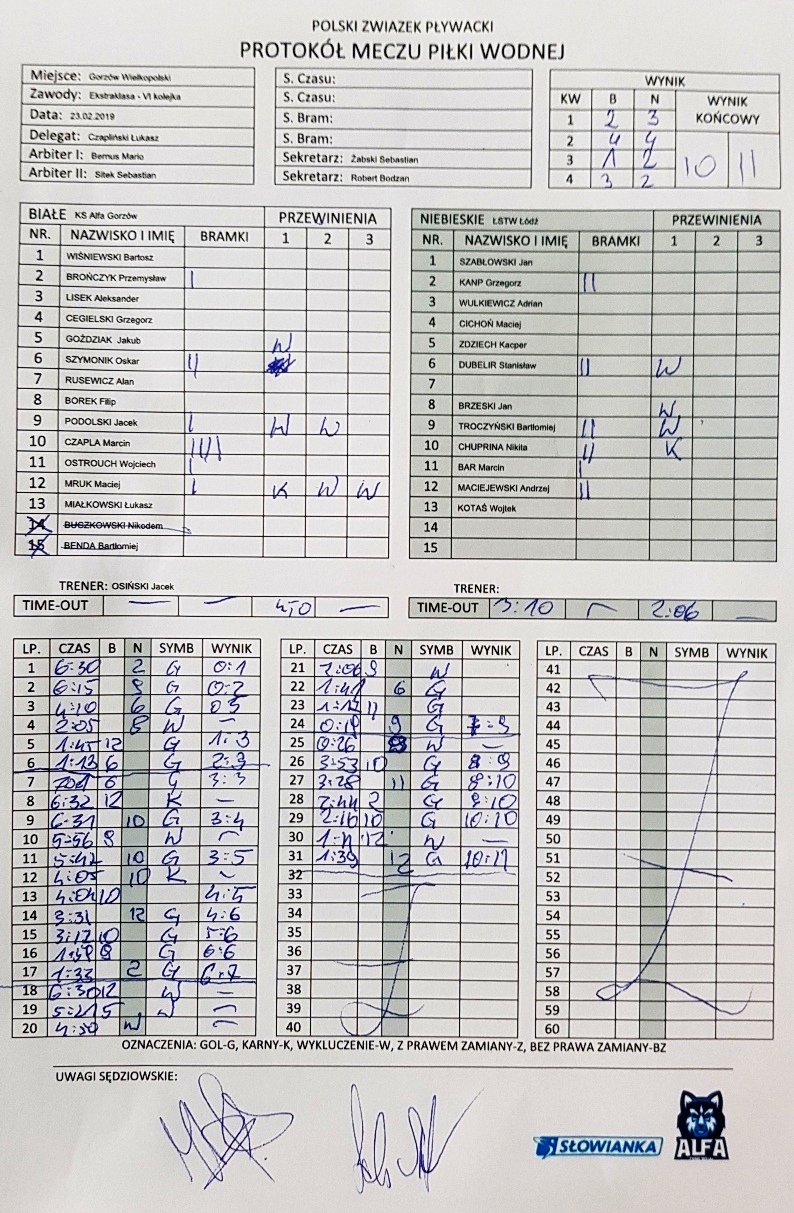 POLSKI ZWIAZEK PŁYWACKI
PROTOKÓŁ MECZU PIŁKI WODNEJ
Miejsce: Gorzów Wielkopolski
Zawody: Ekstraklasa - VI kolejka
Data: 23.02.2019
Delegat: Czapliński Łukasz
Arbiter I: Bernus Mario
Arbiter II: Sitek Sebastian
S. Czasu:
S. Czasu:
S. Bram:
S. Bram:
Sekretarz: Żabski Sebastian
Sekretarz: Robert Bodzan
WYNIK
KW B N WYNIK KOŃCOWY
1 2 3
2 4 4
3 1 2 10 11
4 3 2
BIAŁE KS Alfa Gorzów PRZEWINIENIA
NR. NAZWISKO I IMIĘ BRAMKI 1 2 3
1 WIŚNIEWSKI Bartosz
2 BROŃCZYK Przemysław I
3 LISEK Aleksander
4 CEGIELSKI Grzegorz
5 GOŹDZIAK Jakub W
6 SZYMONIK Oskar II
7 RUSEWICZ Alan
8 BOREK Filip
9 PODOLSKI Jacek I W W
10 CZAPLA Marcin IIII
11 OSTROUCH Wojciech I
12 MRUK Maciej I K W W
13 MIAŁKOWSKI Łukasz
14 BUCZKOWSKI Nikodem
15 BENDA Bartłomiej
NIEBIESKIE ŁSTW Łódź PRZEWINIENIA
NR. NAZWISKO I IMIĘ BRAMKI 1 2 3
1 SZABŁOWSKI Jan
2 KANP Grzegorz II
3 WULKIEWICZ Adrian
4 CICHOŃ Maciej
5 ZDZIECH Kacper
6 DUBELIR Stanisław II W
7
8 BRZESKI Jan W
9 TROCZYŃSKI Bartłomiej II W
10 CHUPRINA Nikita II K
11 BAR Marcin I
12 MACIEJEWSKI Andrzej II
13 KOTAŚ Wojtek
14
15
TRENER: OSIŃSKI Jacek
TIME-OUT — — —
TRENER:
TIME-OUT 3:10 2:06 —
LP. CZAS B N SYMB WYNIK
1 6:30 2 G 0:1
2 6:15 9 G 0:2
3 4:10 6 G 0 3
4 2:05 8 W —
5 1:45 12 G 1:3
6 1:13 6 G 2:3
7 6 G 3:3
8 6:32 12 K —
9 6-31 10 G 3:4
10 5-56 9 W
11 5:42 10 G 3:5
12 4:05 10 K
13 4:04 10 4:5
14 3:31 12 G 4:6
15 3:12 10 G 5:6
16 G 6:6
17 1:33 2 G 6:7
18 6:30 12 W —
19 5:21 5 W
20 4:30 W
LP. CZAS B N SYMB WYNIK
21 2:06 9 W
22 1:41 6 G
23 1:12 11 G
24 9 G
25 0:26 W —
26 3:53 10 G 8:9
27 3:28 11 G 8:10
28 2:44 2 G 9:10
29 2:16 10 G 10:10
30 12 W —
31 1:39 12 G 10:11
32
33
34
35
36
37
38
39
40
LP. CZAS B N SYMB WYNIK
41
42
43
44
45
46
47
48
49
50
51
52
53
54
55
56
57
58
59
60
OZNACZENIA: GOL-G, KARNY-K, WYKLUCZENIE-W, Z PRAWEM ZAMIANY-Z, BEZ PRAWA ZAMIANY-BZ
UWAGI SĘDZIOWSKIE:
SŁOWIANKA
ALFA